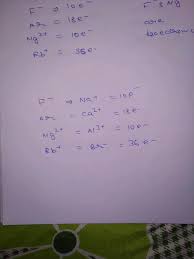 F⁻ = 10e⁻
F⁻ & Mg
Ar = 18e⁻
are
Mg²⁺ = 10e⁻
Rb⁺ = 36e⁻
F⁻ → Na⁺ = 10e⁻
Ar = Ca²⁺ = 18e⁻
Mg²⁺ = Al³⁺ = 10e⁻
Rb⁺ = Br⁻ = 36e⁻